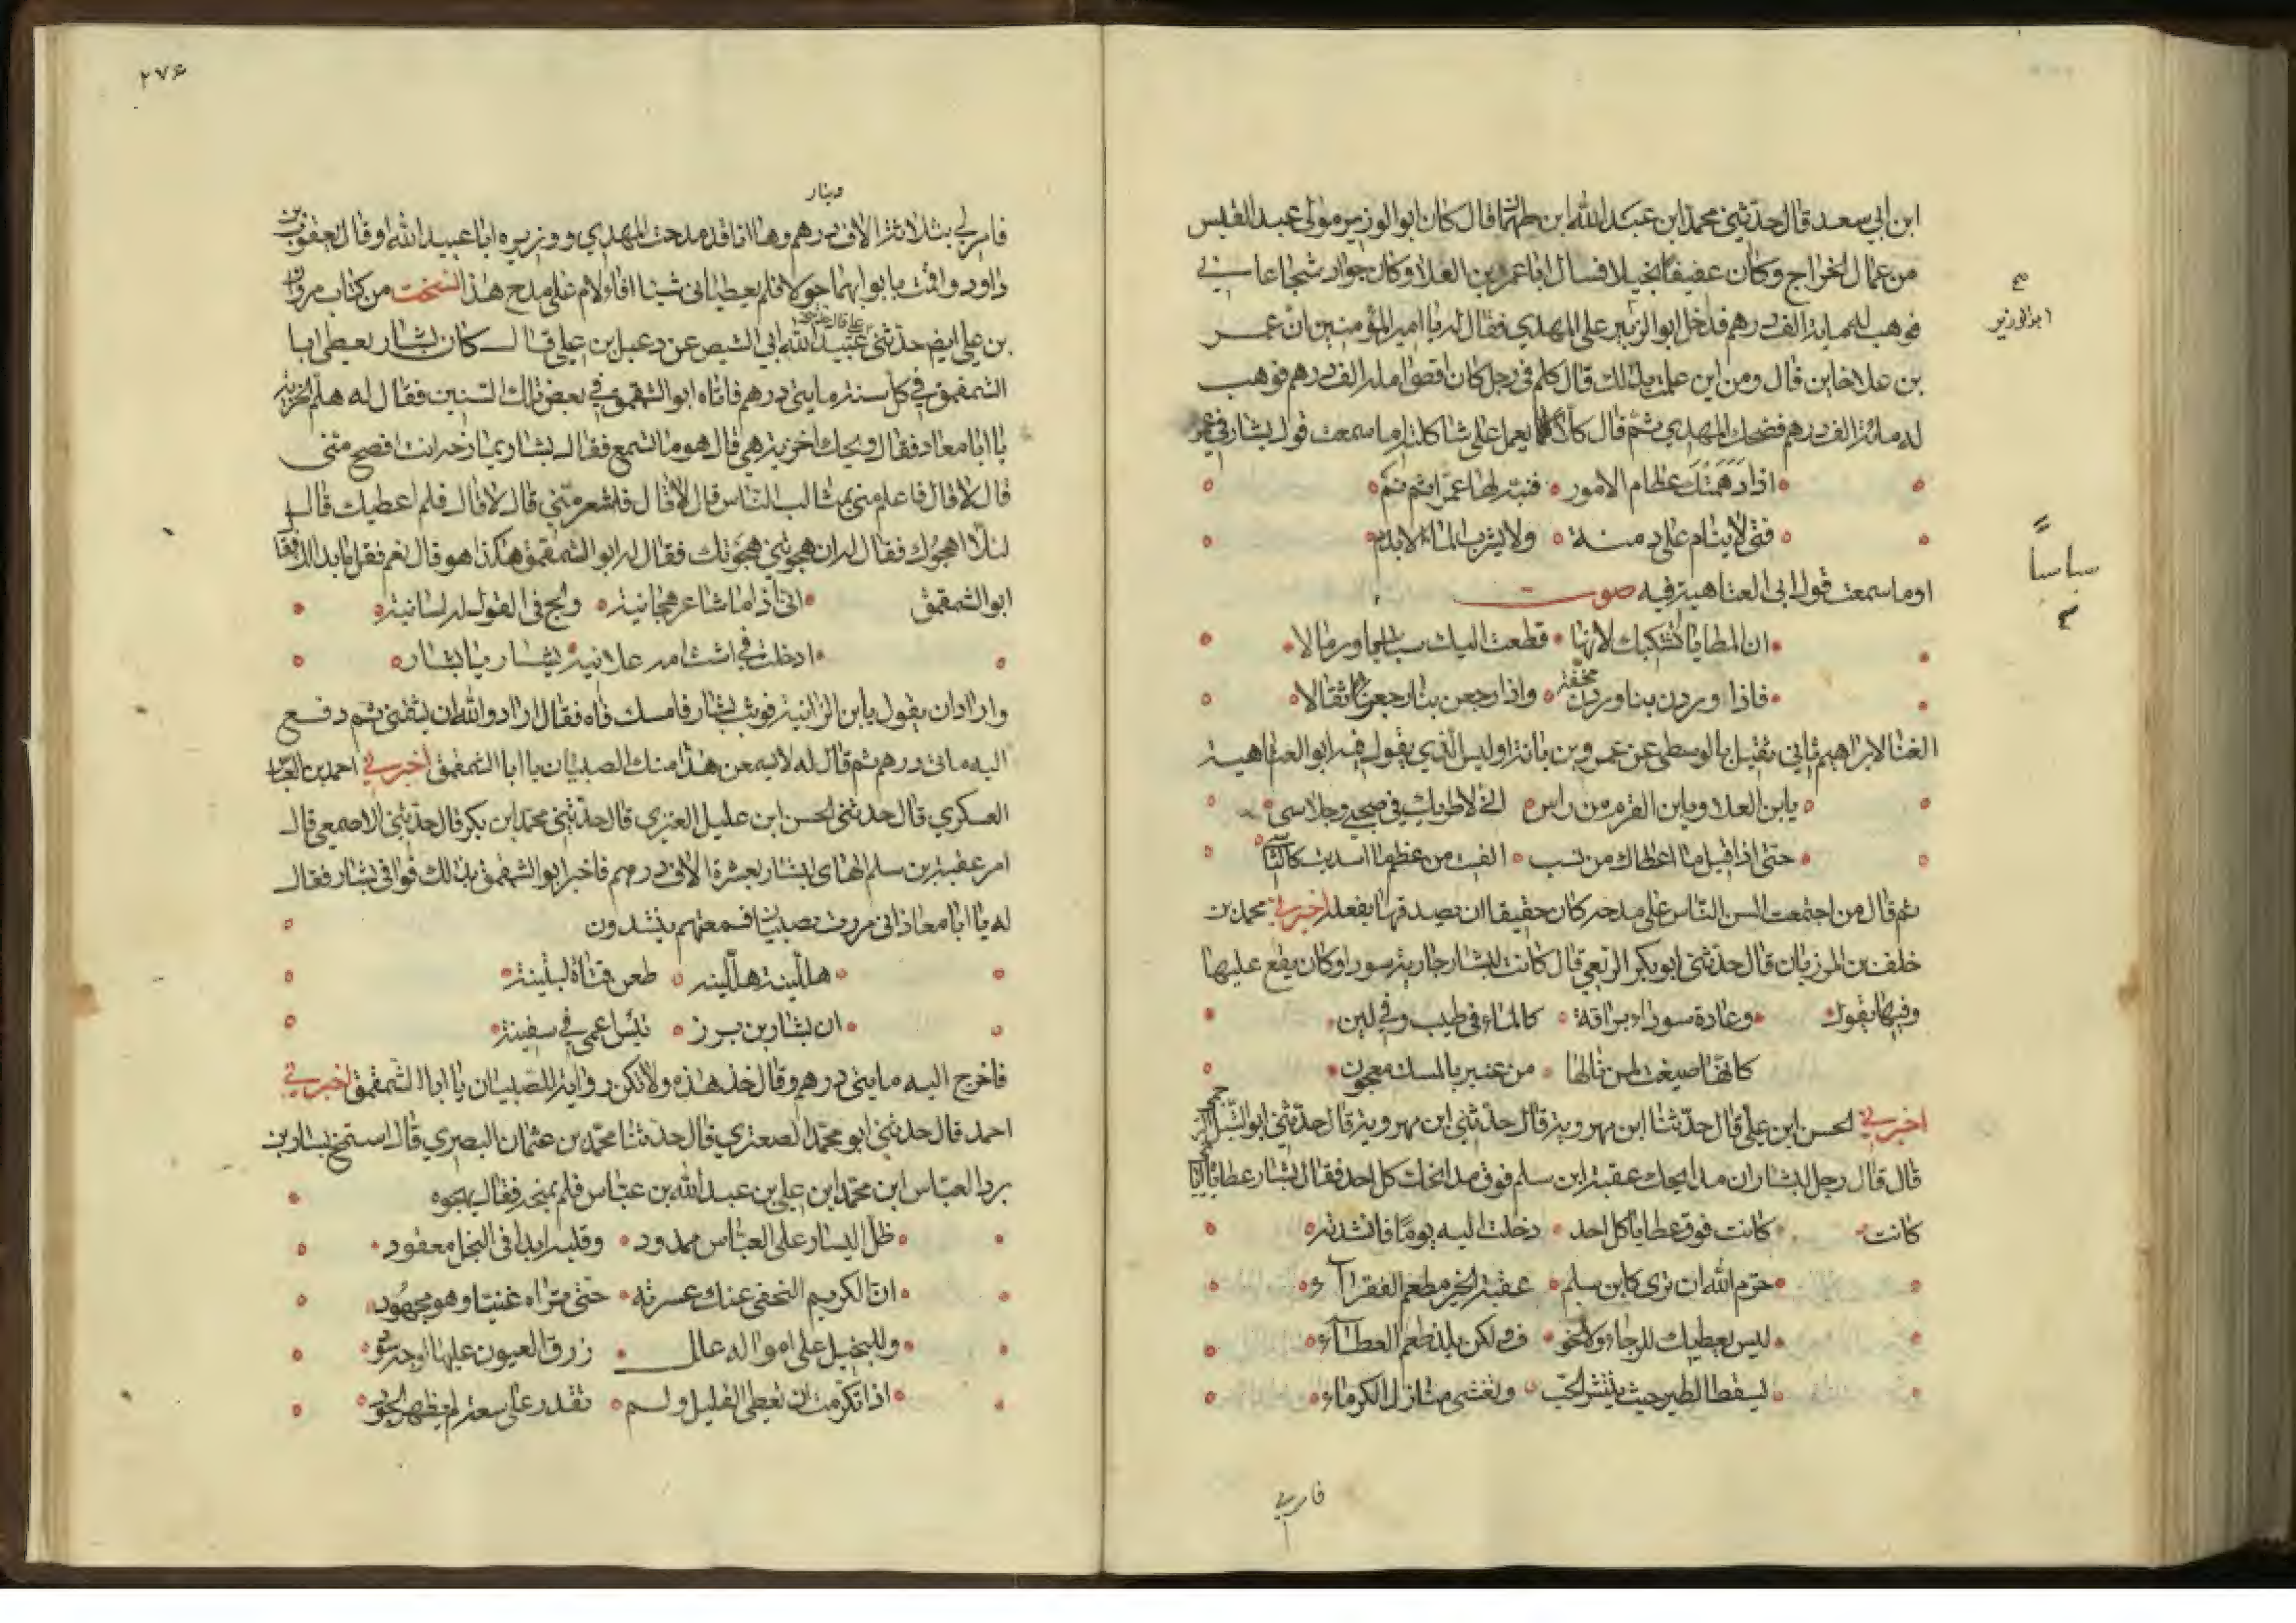 ابن ابي سعد قال حدثني محمد ابن عبد الله ابن طهمان قال كان ابو الوزير مولى عبد القيس
من عمال الخراج وكان عفيفا بخيلا فسال ابا عمر بن العلا وكان جواد شجاعا في
فوهب له مماية الف درهم فدخل ابو الوزير على المهدي فقال له يا امير المؤمنين ان عمر
بن علا خاين قال ومن اين علمت ذلك قال كلم في رجل كان اقصى امله الف درهم فوهب
له مائة الف درهم فضحك المهدي ثم قال كل يعمل على شاكلته اما سمعت قول بشار في عمر
اذا دهمتك عظام الامور فنبه لها عمرا ثم نم
فتى لا ينام على دمنة ولا يشرب الماء الا بدم
اوما سمعت قول ابي العتاهية فيه صوت
ان المطايا تشتكيك لانها قطعت اليك سباسبا ورمالا
فاذا وردن بنا وردن مخفة واذا رجعن بنا رجعن ثقالا
الغنا لابراهيم ثاني ثقيل بالوسطى عن عمرو بن بانة اوليس الذي يقول فيه ابو العتاهية
يابن العلا ويابن القرم مرداس اني لاطريك في صحبي وجلاسي
حتى اذا قيل ما اعطاك من نسب الفيت من عظم ما اسديت كالناسي
ثم قال من اجتمعت السن الناس على مدحه كان حقيقا ان يصدقها بفعله اخبرني محمد بن
خلف بن المرزبان قال حدثني ابو بكر الربعي قال كانت لبشار جارية سودا وكان يقع عليها
وفيها يقول وغادة سوداء براقة كالماء في طيب وفي لين
كانها صيغت لمن نالها من عنبر بالمسك معجون
اخبرني الحسن ابن علي قال حدثنا ابن مهروية قال حدثني ابن مهروية قال حدثني ابو الشبل
قال قال رجل لبشار ان مدايحك عقبة ابن سلم فوق مدايحك كل احد فقال بشار عطاياه اياي
كانت كانت فوق عطايا كل احد دخلت اليه يوما فانشدته
حرم الله ان ترى كابن سلم عقبة الخير مطعم الفقراء
ليس يعطيك للرجاء ولا الخو ف ولكن يلذ طعم العطاء
يسقط الطير حيث ينتثر الحب وتغشى منازل الكرماء
فامر لي
ابو الوزير
سباسباً
٢٧٤
دينار
فامر لي بثلاثة الاف درهم وها انا قد مدحت المهدي ووزيره ابا عبيد الله او قال يعقوب بن
داود واقمت بابوابهما حولا فلم يعطياني شيئا افالام على مدح هذا نسخت من كتاب مروان
بن علي ايض حدثني عبيد الله ابي الشيص عن دعبل ابن علي قال كان بشار يعطي ابا
الشمقمق في كل سنة مايتي درهم فاتاه ابو الشمقمق في بعض تلك السنين فقال له هلم الجزية
يا ابا معاذ فقال ويحك اجزية هي قال هو ما تسمع فقال بشار يمازحه انت افصح مني
قال لا قال فاعلم مني بمثالب الناس قال لا قال فاشعر مني قال لا قال فلم اعطيك قال
لئلا اهجوك فقال له ان هجوتني هجوتك فقال له ابو الشمقمق هكذا هو قال نعم فقل ما بدا لك فقال
ابو الشمقمق اني اذا ما شاعر هجانيه ولج في القول له لسانيه
ادخلته في است امه علانيه بشار يا بشار
واراد ان يقول يابن الزانية فوثب بشار فامسك فاه فقال اراد والله ان يشتمني ثم دفع
اليه مائتي درهم ثم قال له لا يسمعن هذا منك الصبيان يا ابا الشمقمق اخبرني احمد بن العباس
العسكري قال حدثني الحسن ابن عليل العنزي قال حدثني محمد ابن بكر قال حدثني الاصمعي قال
امر عقبة بن سلم الهنائي لبشار بعشرة الاف درهم فاخبر ابو الشمقمق بذلك فوافى بشار فقال
له يا ابا معاذ اني مررت بصبيان فسمعتهم ينشدون
هللينه هللينه طعن قثاة لتينه
ان بشار بن برد تيس اعمى في سفينه
فاخرج اليه مايتي درهم وقال خذ هذه ولا تكن راوية للصبيان يا ابا الشمقمق اخبرني
احمد قال حدثني ابو محمد الصعتري قال حدثنا محمد بن عثمان البصري قال استمنح بشار بن
برد العباس ابن محمد ابن علي بن عبد الله بن عباس فلم يمنحه فقال يهجوه
ظل اليسار على العباس ممدود وقلبه ابدا في البخل معقود
ان الكريم ليخفي عنك عسرته حتى تراه غنيا وهو مجهود
وللبخيل على امواله علل زرق العيون عليها اوجه سود
اذا تكرمت ان تعطي القليل ولم تقدر على سعة لم يظهر الجود